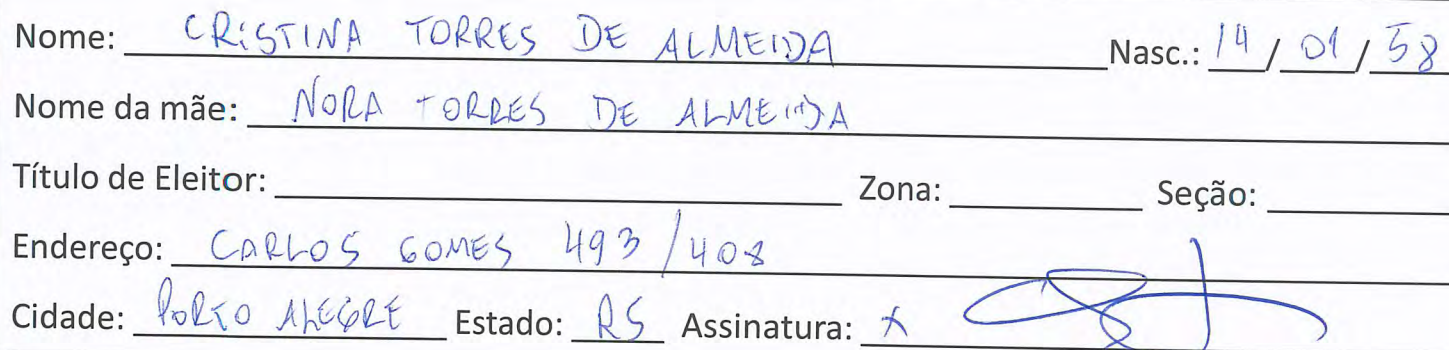 Nome: CRISTINA TORRES DE ALMEIDA Nasc.: 14 / 01 / 58
Nome da mãe: NORA TORRES DE ALMEIDA
Título de Eleitor: Zona: Seção:
Endereço: CARLOS GOMES 493 / 408
Cidade: PORTO ALEGRE Estado: RS Assinatura: x